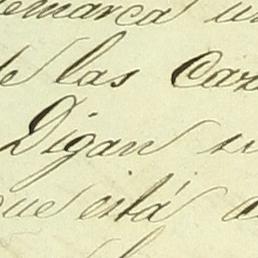 emarca un
de las Caz
Digan si
que está a